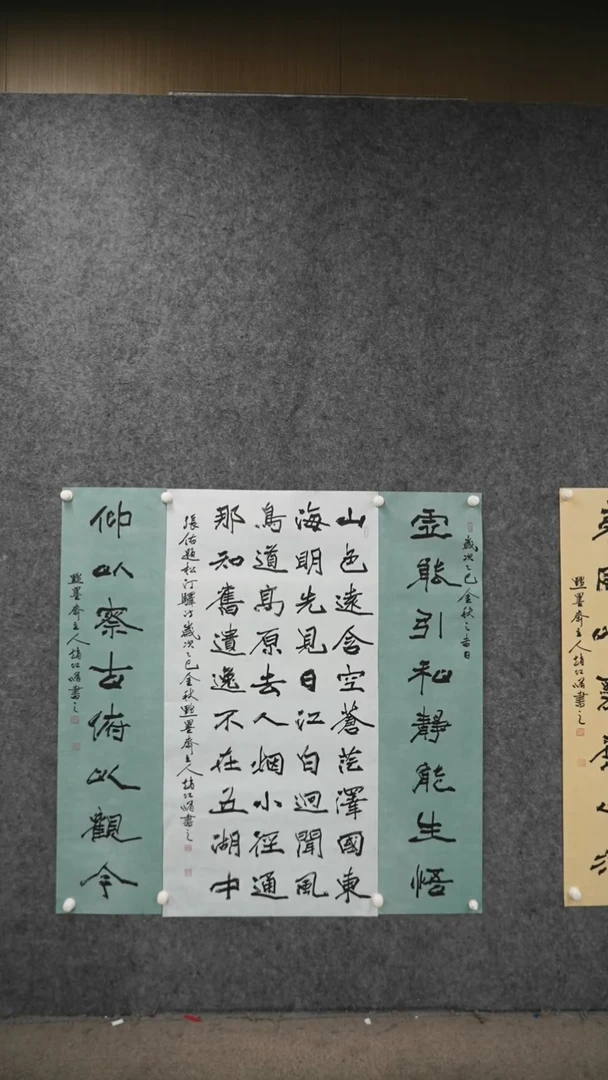 歲次乙巳金秋之吉日
虛能引和靜能生悟
山色遠含空蒼茫澤國東
海明先見日江白迥聞風
鳥道高原去人烟小徑通
那知舊遺逸不在五湖中
張佑題松汀驛詩歲次乙巳金秋點墨齋主人趙江書之
仰以察古俯以觀今
點墨齋主人趙江書之
點墨齋主人趙江書之